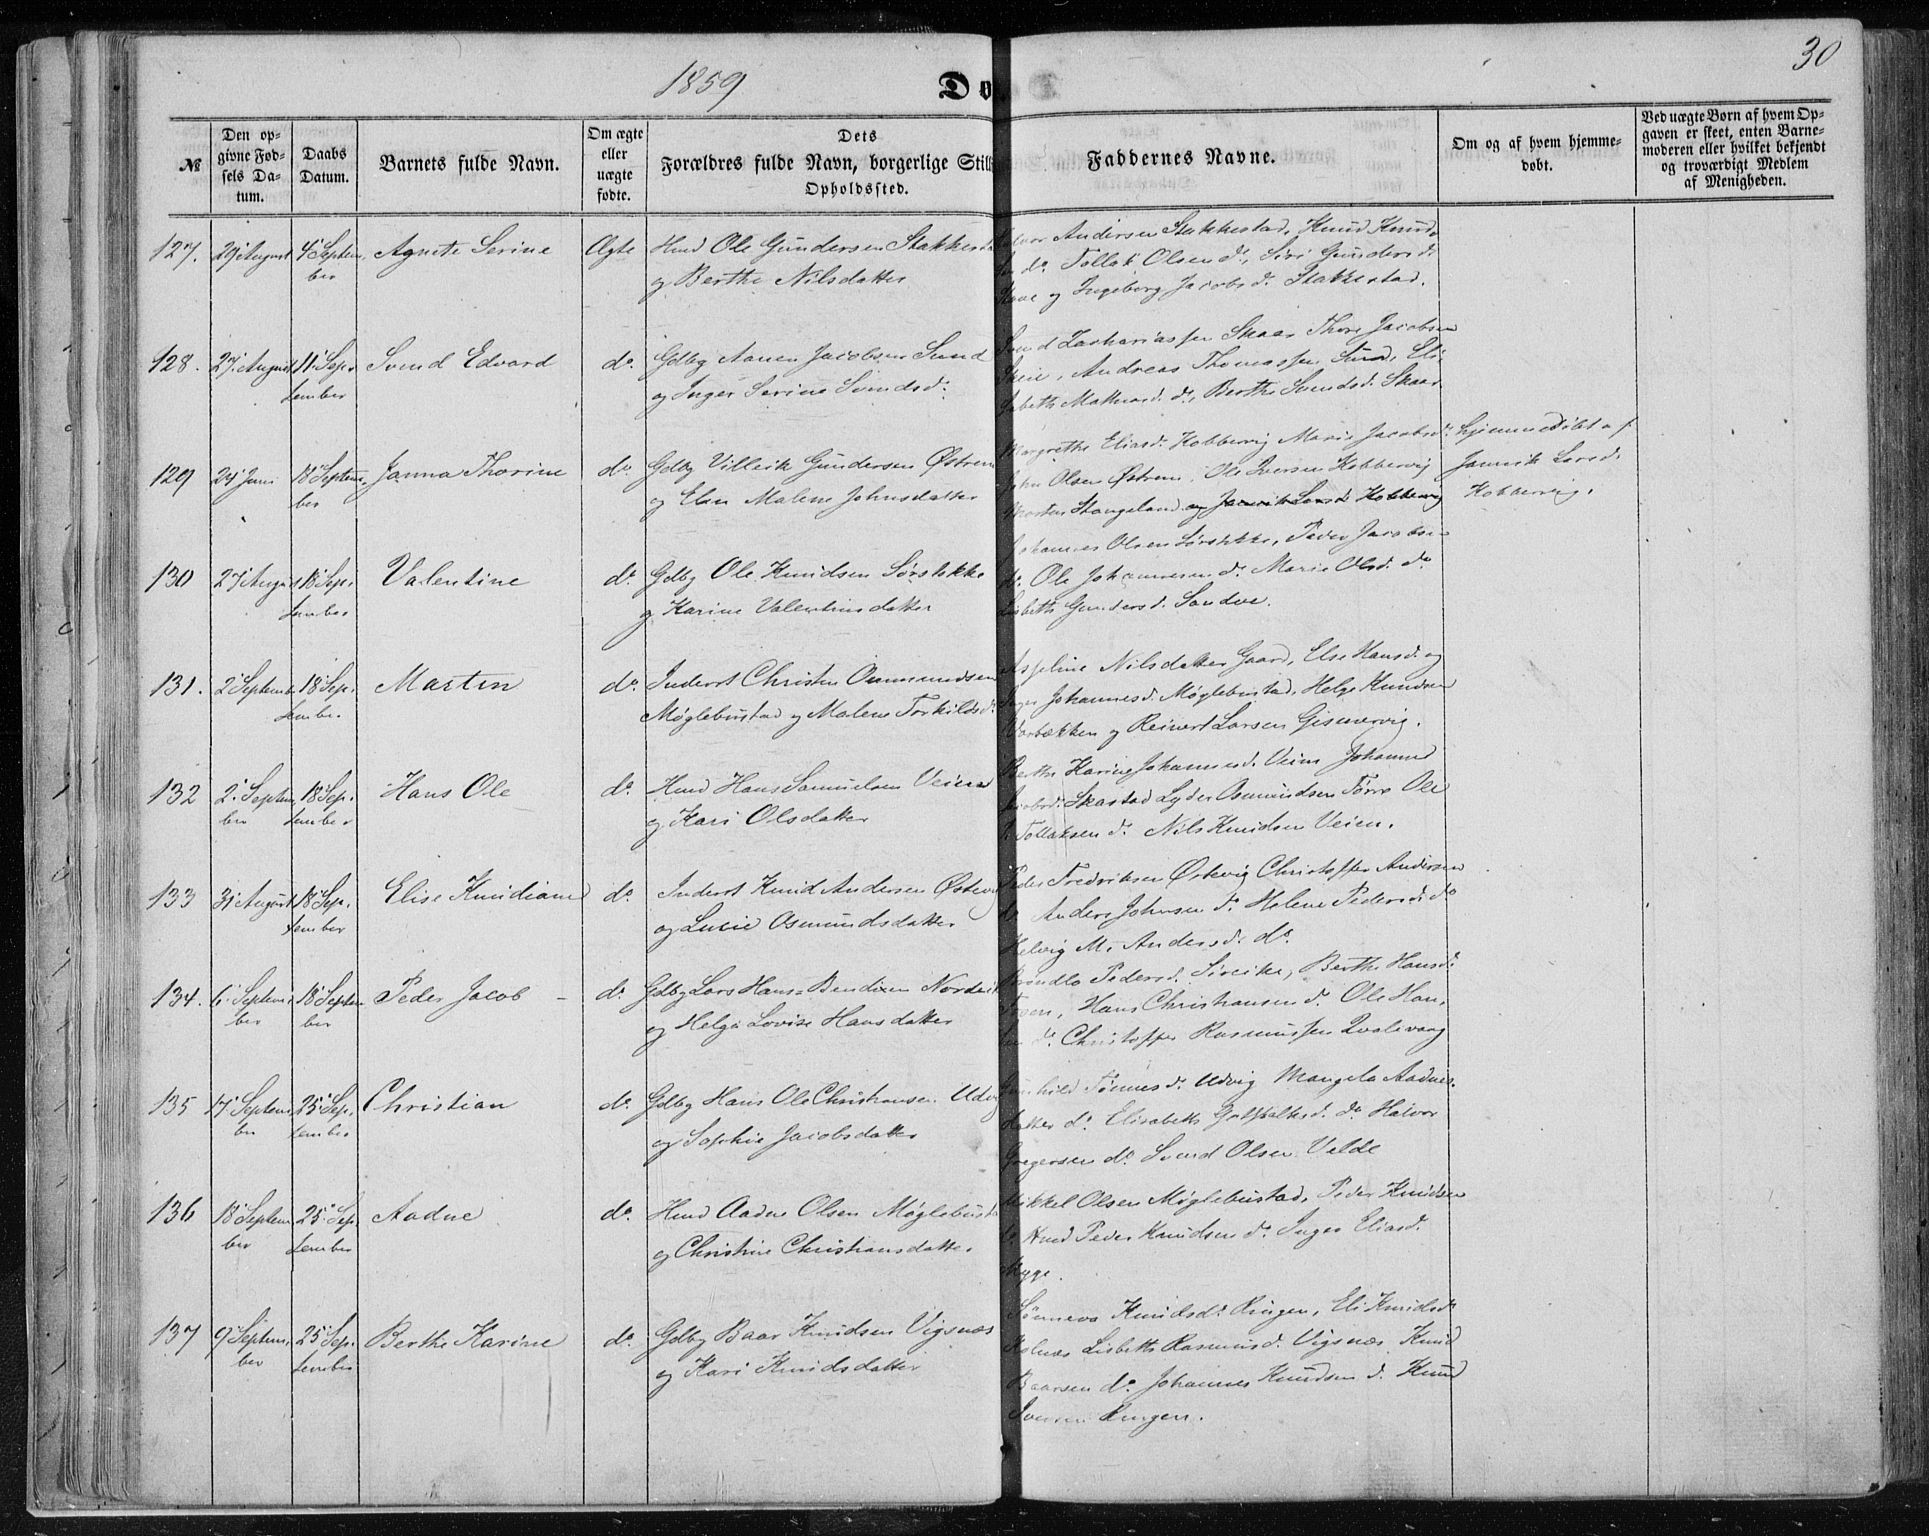 1859
30
Dø
№
Den opgivne Fødsels Datum.
Daabs Datum.
Barnets fulde Navn.
Om ægte eller uægte fødte.
Dets Forældres fulde Navn, borgerlige Still Opholdssted.
Faddernes Navne.
Om og af hvem hjemmedøbt.
Ved uægte Børn af hvem Opgaven er skeet, enten Barnemoderen eller hvilket bekjendt og troværdigt Medlem af Menigheden.
127. 29 August 4 September Agnete Serine Ægte Hmd Ole Gundersen Stakkesta
og Berthe Nilsdatter
Andersen Stakkestad, Knud Knud
do. Tollak Olsen do, Siri Gundersd.
og Ingeborg Jacobsd. Stakkestad.
128. 27 August 11 September Svend Edvard do. Gdbg Aanen Jacobsen Sund
og Inger Serine Svendsd.
Svend Zachariassen Skaar Thore Jacobsen
Skeie, Andreas Thomassen Sund, Eli
sabeth do, Berthe Svendsd. Skaar
129 24 Juni 18 September Janna Thorine do. Gdbg Villeik Gundersen Østrem
og Elen Malene Johnsdatter
Margrethe Eliasd. Kobbervig Marie Jacobsd.
John Olsen Østrem, Ole Iversen Kobbervig
Morten Stangeland og Jannik Larsd. Kobbervig
hjemmedøbt af
Jannik Larsd.
Kobbervig.
130 27 August 18 September Valentine do. Gdbg Ole Knudsen Sørstokke
og Karine Valentinsdatter
Johannes Olsen Sørstokke, Peder Jacobsen
do. Ole Johannesen do. Marie Olsd. do
Lisbeth Gundersd. Sandve.
131. 2 Septemb 18 September Martin do. Inderst Christen Osmundsen
Møglebustad og Malene Torkildsd.
Nilsdatter Gaard, Else Hansd. og
Inger Johannesd. Møglebustad, Helge Knudsen
Vorbækken og Reinert Larsen Gismervig.
132 2 September 18 September Hans Ole do. Hmd Hans Samuelsen Veien
og Kari Olsdatter
Berthe Karine Johannesd. Veien Johanne
Jacobsd. Skastad Lyder Osmundsen Torre Ole
Tollaksen do. Nils Knudsen Veien.
133 31 August 18 September Elise Knudiane do. Inderst Knud Andersen Østevig
og Lucie Osmundsdatter
Peder Fredriksen Østevig Christoffer Andersen
do Anders Johnsen do. Helene Pedersd. do
Helvig M. Andersd. do.
134. 6 September 18 September Peder Jacob do. Gdbg Lars Hans-Bendixen Nordvik
og Helga Lovise Hansdatter
Pedersd. Søreike, Berthe Hansd.
Hans Christiansen do. Ole Han
sen do. Christoffer Rasmussen Qvalevaag
135 17 September 25 September Christian do. Gdbg Hans Ole Christiansen Udvig
og Sophie Jacobsdatter
Gunhild Tønnesd. Udvig Mangela Aadnes
datter do. Elisabeth Gotskalksd. do Halvor
Gregersen do. Svend Olsen Velde
136 18 September 25 September Aadne do. Hmd Aadne Olsen Møglebust
og Christine Christiansdatter
Mikkel Olsen Møglebustad, Peder Knudsen
do Hmd Peder Knudsen do. Inger Eliasd.
Myge.
137 9 September 25 September Berthe Karine do. Gdbg Baar Knudsen Vigsnæs
og Kari Knudsdatter
Sønneva Knudsd. Ringen, Eli Knudsd.
Lisbeth Rasmusd. Vigsnæs, Knud
Baarsen do. Johannes Knudsen do. Knud
Iversen Ringen.